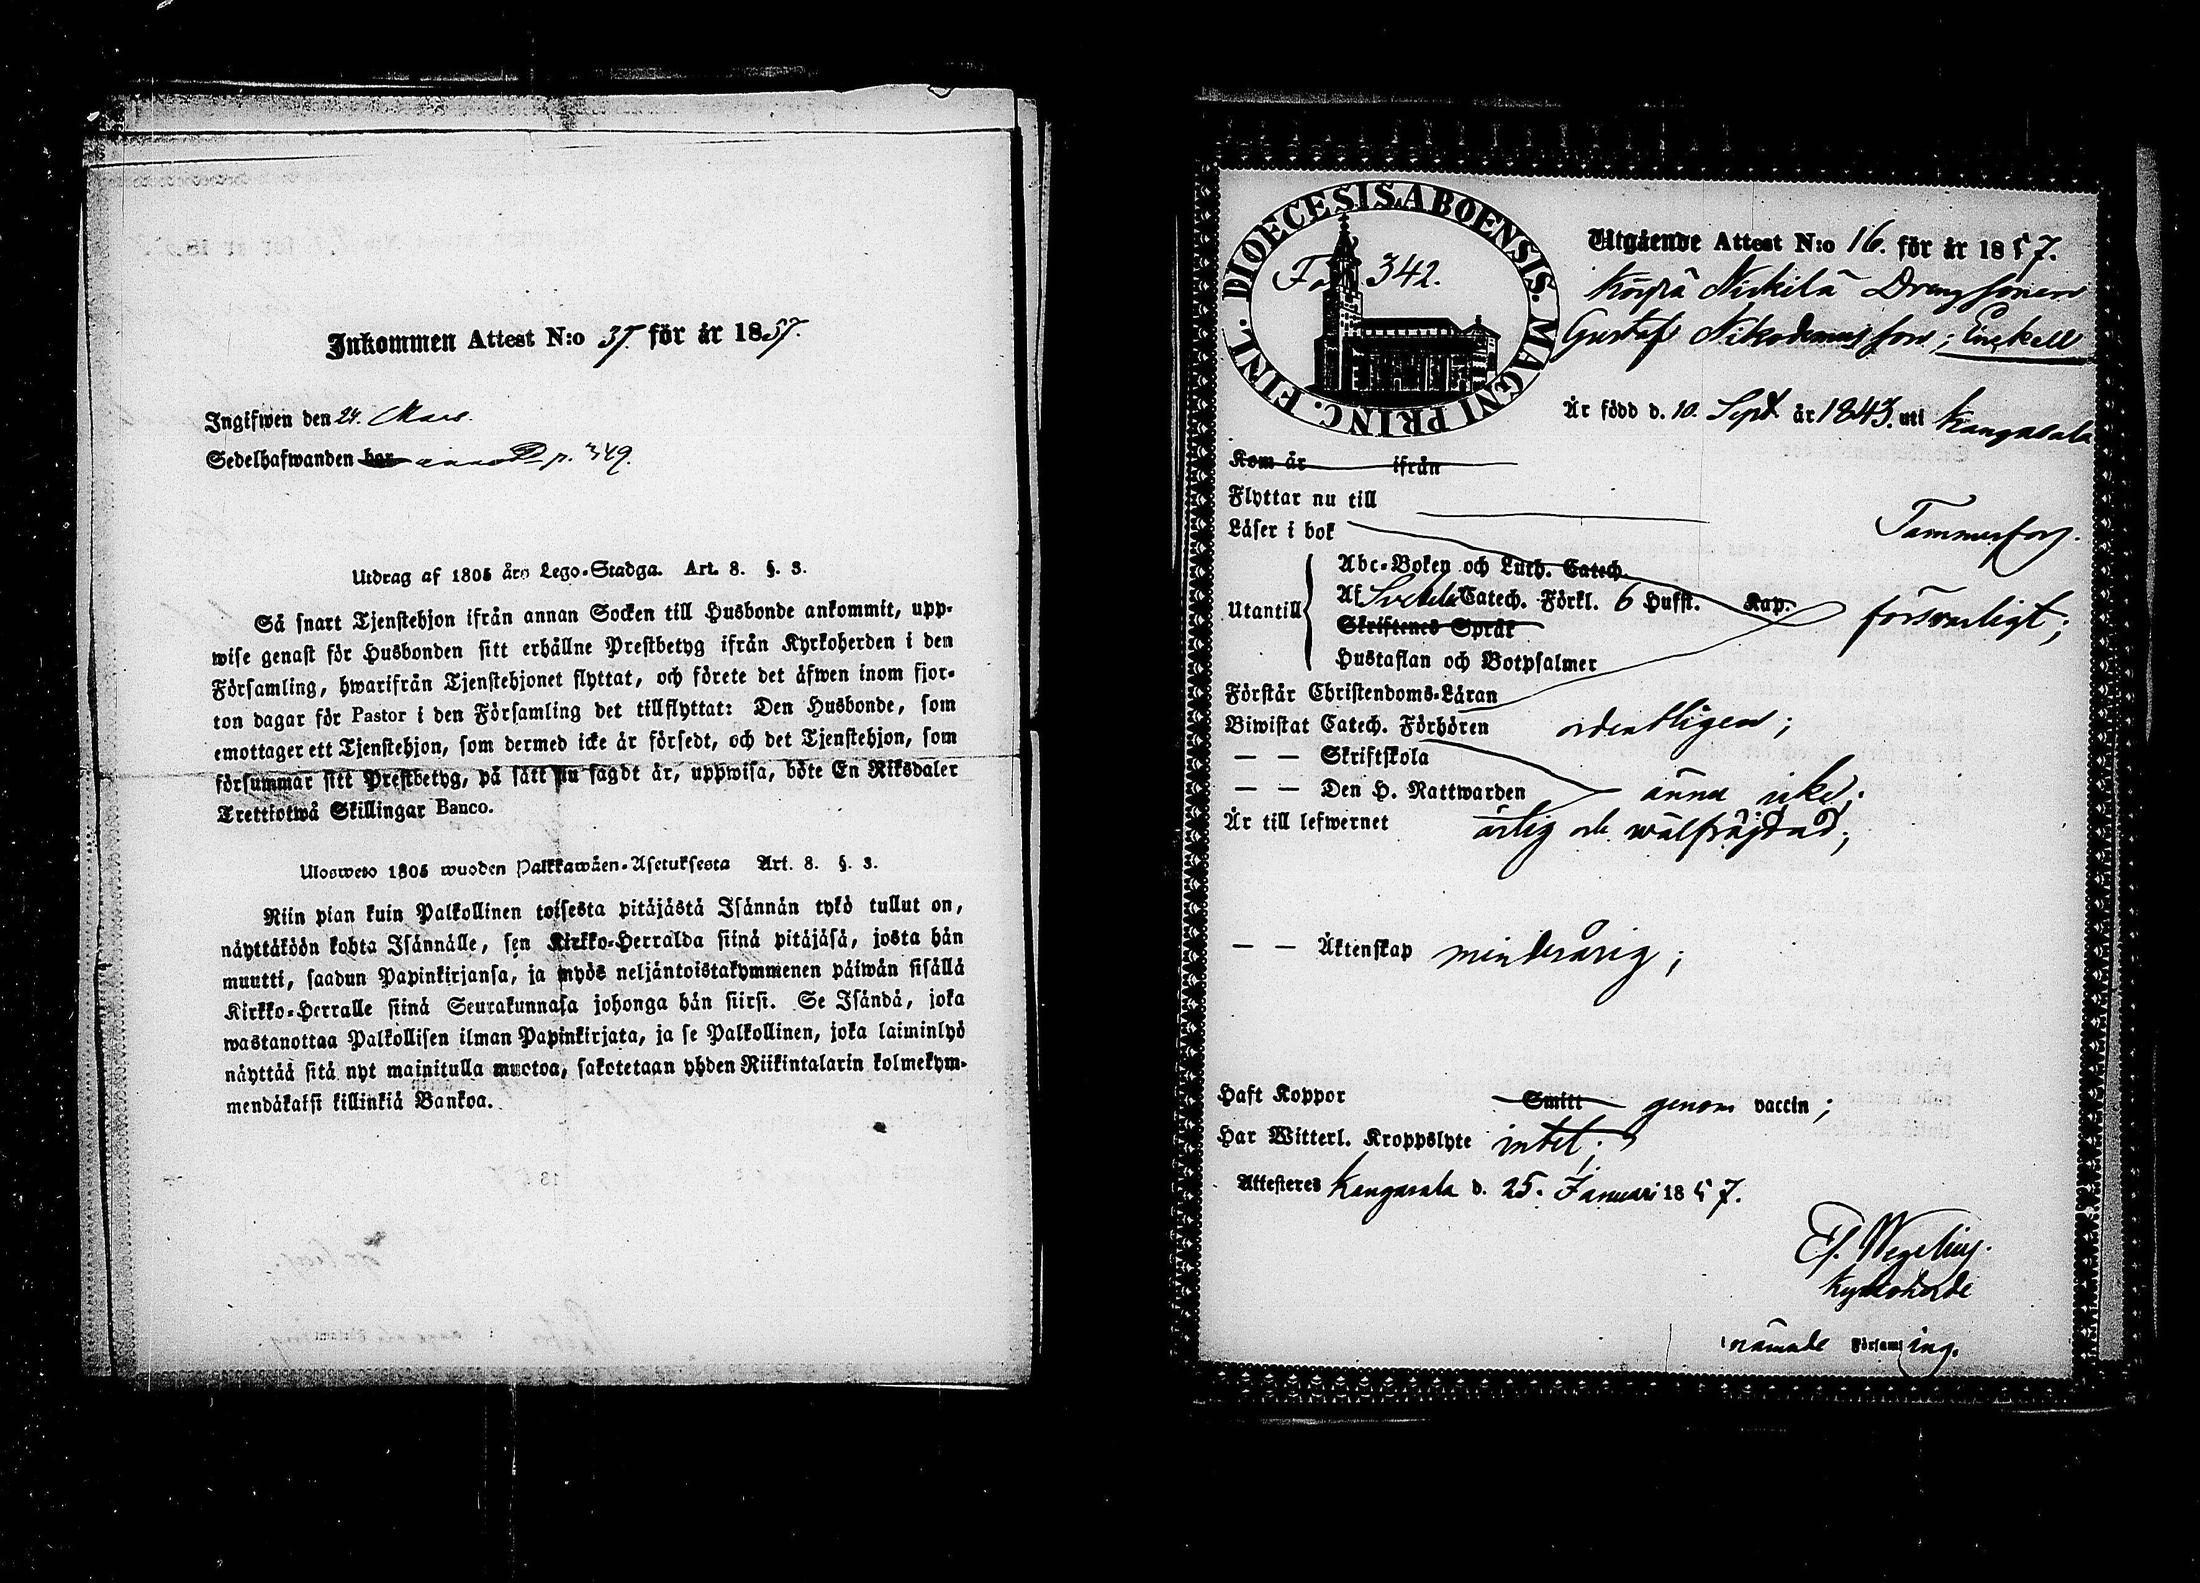 Inkommen Attest N:o 37. för år 1857.
Ingifwen den 24. Mars.
Sedelhafwanden har p. 349.
Utdrag af 1805 års Lego-Stadga. Art. 8. §. 3.
Så snart Tjenstehjon ifrån annan Socken till Husbonde ankommit, upp-
wise genast för Husbonden sitt erhållne Prestbetyg ifrån Kyrkoherden i den
Församling, hwarifrån Tjenstehjonet flyttat, och förete det äfwen inom fjor-
ton dagar för Pastor i den Församling det tillflyttat: Den Husbonde, som
emottager ett Tjenstehjon, som dermed icke är försedt, och det Tjenstehjon, som
försummar sitt Prestbetyg, på sätt nu sagdt är, uppwisa, böte En Riksdaler
Trettiotwå Skillingar Banco.
Ulosweto 1805 wuoden Palkkawäen-Asetuksesta Art. 8. §. 3.
Niin pian kuin Palkollinen toisesta pitäjästä Isännän tykö tullut on,
näyttäköön kohta Isännälle, sen Kirkko-Herralda siinä pitäjäsä, josta hän
muutti, saadun Papinkirjansa, ja myös neljäntoistakymmenen päiwän sisällä
Kirkko-Herralle siinä Seurakunnasa johonga hän siirsi. Se Isändä, joka
wastanottaa Palkollisen ilman Papinkirjata, ja se Palkollinen, joka laiminlyö
näyttää sitä nyt mainitulla muotoa, sakotetaan yhden Riikintalarin kolmekym-
mendäkaksi killinkiä Bankoa.
DIOECESIS ABOENSIS. MAGNI PRINC. FINL.
Fol. 342.
Utgående Attest N:o 16. för år 1857.
Nickilä Drengsonen
Gustaf Nikodemusson; Enckell
Är född d. 10. Sept. år 1843. uti Kangasala
Kom år ifrån
Flyttar nu till Tammerfors.
Läser i bok
Utantill Abc-Boken och Luth. Catech.
Af Svebelii Catech. Förkl. 6 Hufst. Kap. försvarligt;
Skriftenes Språk
Hustaflan och Botpsalmer
Förstår Christendoms-Läran
Biwistat Catech. Förhören ordentligen;
— — Skriftskola
— — Den H. Nattwarden ännu icke;
Är till lefwernet ärlig och wälfräjdad;
— — Äktenskap minderårig;
Haft Koppor Smitt genom vaccin;
Har Witterl. Kroppslyte intet;
Attesteres Kangasala d. 25. Januari 1857.
Kyrkoherde
i nämnde Församling.